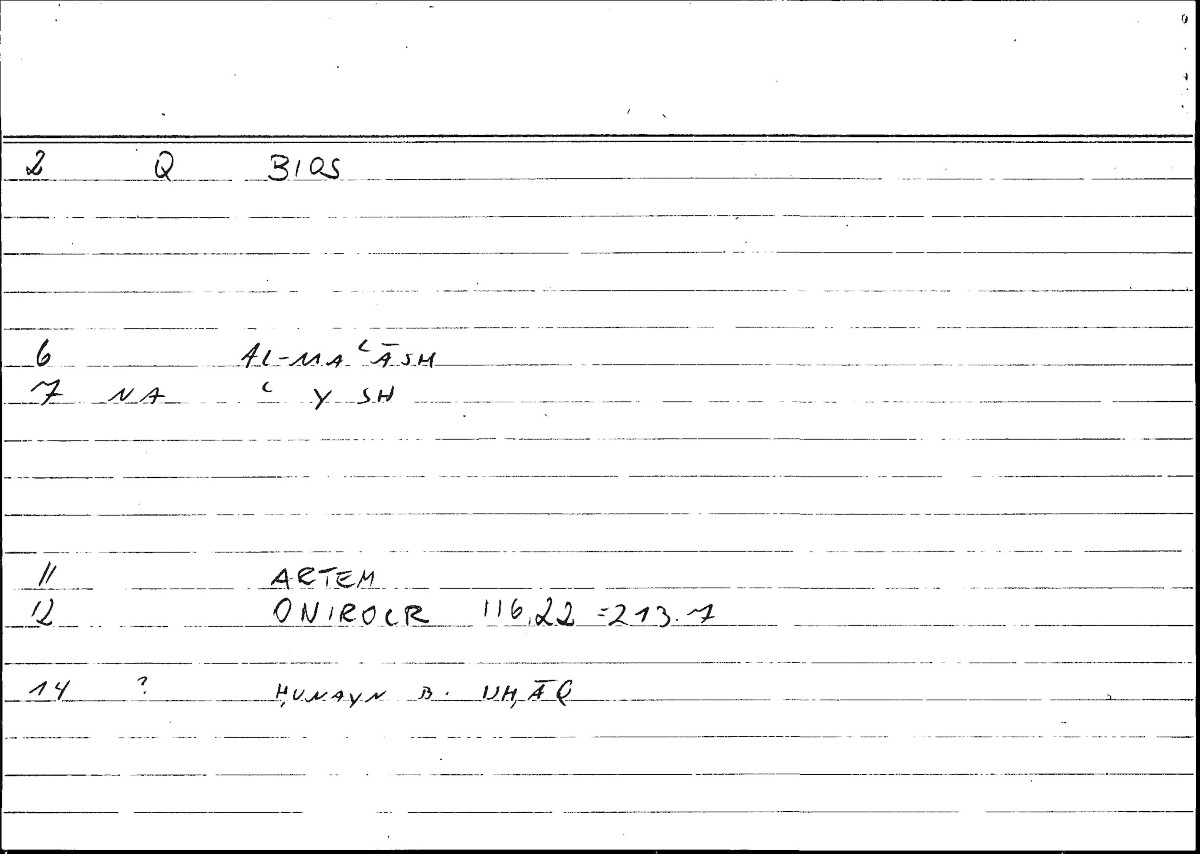 2 Q BIOS
6 AL-MAʿĀSH
7 NA ʿ Y SH
11 ARTEM
12 ONIROCR 116,22 =213.7
14 ? ḤUNAYN B. ISḤĀQ